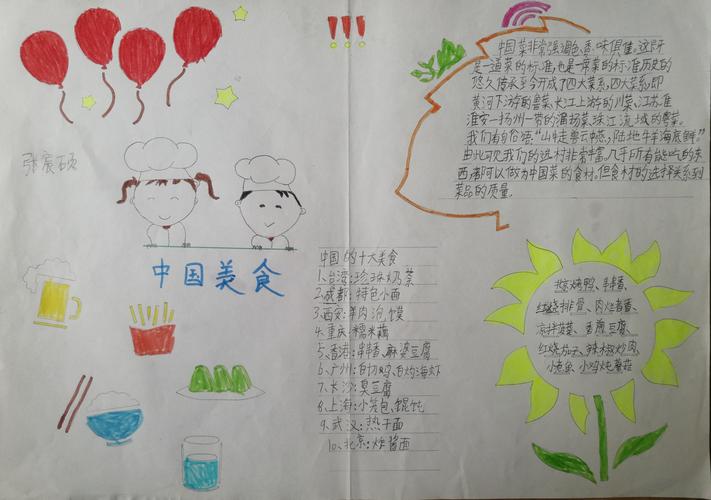 !!!
中国菜非常强调色、香、味俱佳。这既
是一道菜的标准,也是一席菜的标准历史的
悠久传承至今形成了四大菜系,四大菜系,即
黄河下游的鲁菜、长江上游的川菜、江苏淮
淮安—扬州一带的淮扬菜、珠江流域的粤菜。
我们有句俗语“山中走兽云中燕,陆地牛羊海底鲜”
由此可见我们的选材非常丰富,几乎所有能吃的东
西都可以做为中国菜的食材,但食材的选择关系到
菜品的质量.
中国美食
中国的十大美食
1、台湾:珍珠奶茶
2、成都:特包小面
3、西安:羊肉泡馍
4、重庆:糯米藕
5、香港:串串香、麻婆豆腐
6、广州:白切鸡、白灼海虾
7、长沙:臭豆腐
8、上海:小笼包、馄饨
9、武汉:热干面
10、北京:炸酱面
烤鸭、串串香、
红烧排骨、
凉拌菠菜、豆腐
红烧茄子、辣椒炒肉、
小鸡炖蘑菇